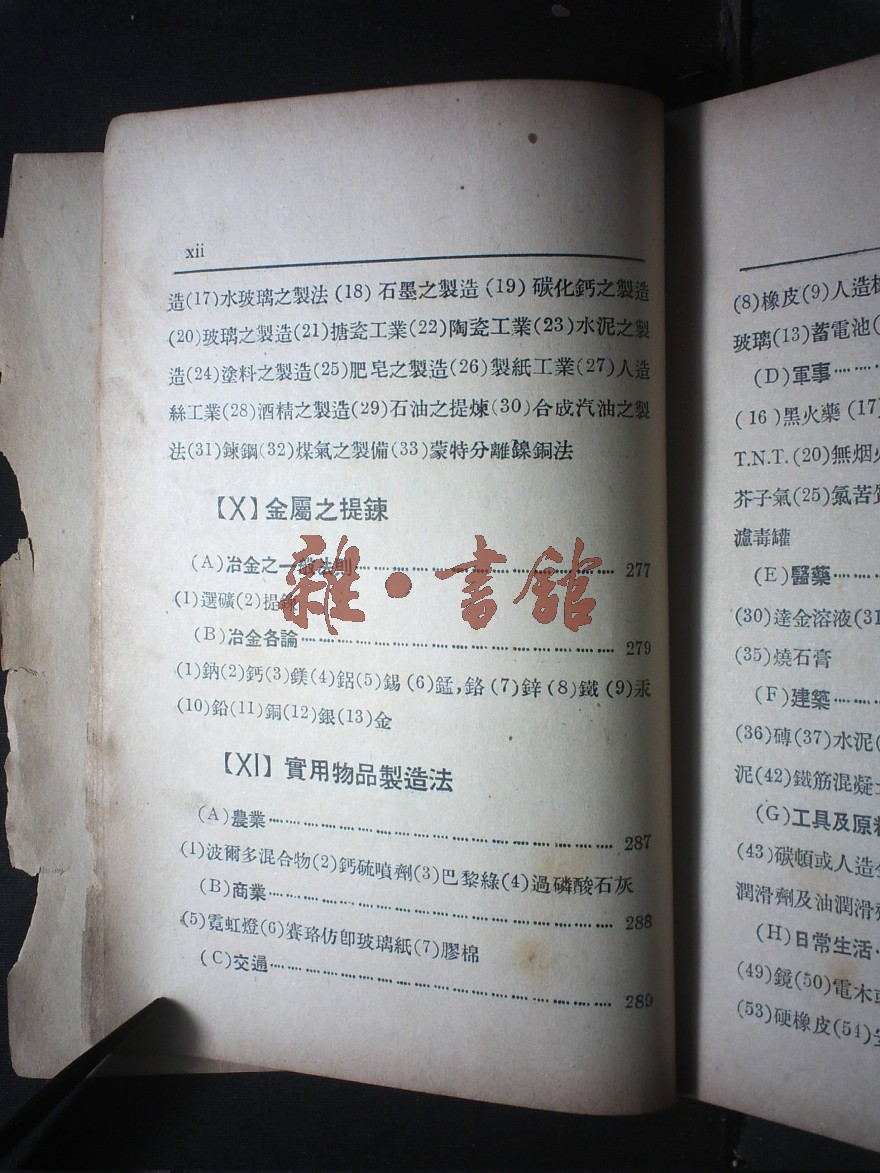 xii
造(17)水玻璃之製法(18)石墨之製造(19)碳化鈣之製造
(20)玻璃之製造(21)搪瓷工業(22)陶瓷工業(23)水泥之製
造(24)塗料之製造(25)肥皂之製造(26)製紙工業(27)人造
絲工業(28)酒精之製造(29)石油之提煉(30)合成汽油之製
法(31)鍊鋼(32)煤氣之製備(33)蒙特分離鎳銅法
【X】金屬之提鍊
(A)冶金之一般法則 277
(1)選礦(2)提鍊
(B)冶金各論 279
(1)鈉(2)鈣(3)鎂(4)鋁(5)錫(6)錳,鉻(7)鋅(8)鐵(9)汞
(10)鉛(11)銅(12)銀(13)金
【XI】實用物品製造法
(A)農業 287
(1)波爾多混合物(2)鈣硫噴劑(3)巴黎綠(4)過磷酸石灰
(B)商業 288
(5)霓虹燈(6)賽珞仿卽玻璃紙(7)膠棉
(C)交通 289
雜·書館
(8)橡皮(9)人造
玻璃(13)蓄電池(
(D)軍事
(16)黑火藥(17)
T.N.T.(20)無烟
芥子氣(25)氯苦
濾毒罐
(E)醫藥
(30)達金溶液(31
(35)燒石膏
(F)建築
(36)磚(37)水泥(
泥(42)鐵筋混凝
(G)工具及原料
(43)碳頓或人造
潤滑劑及油潤滑
(H)日常生活
(49)鏡(50)電木
(53)硬橡皮(54)